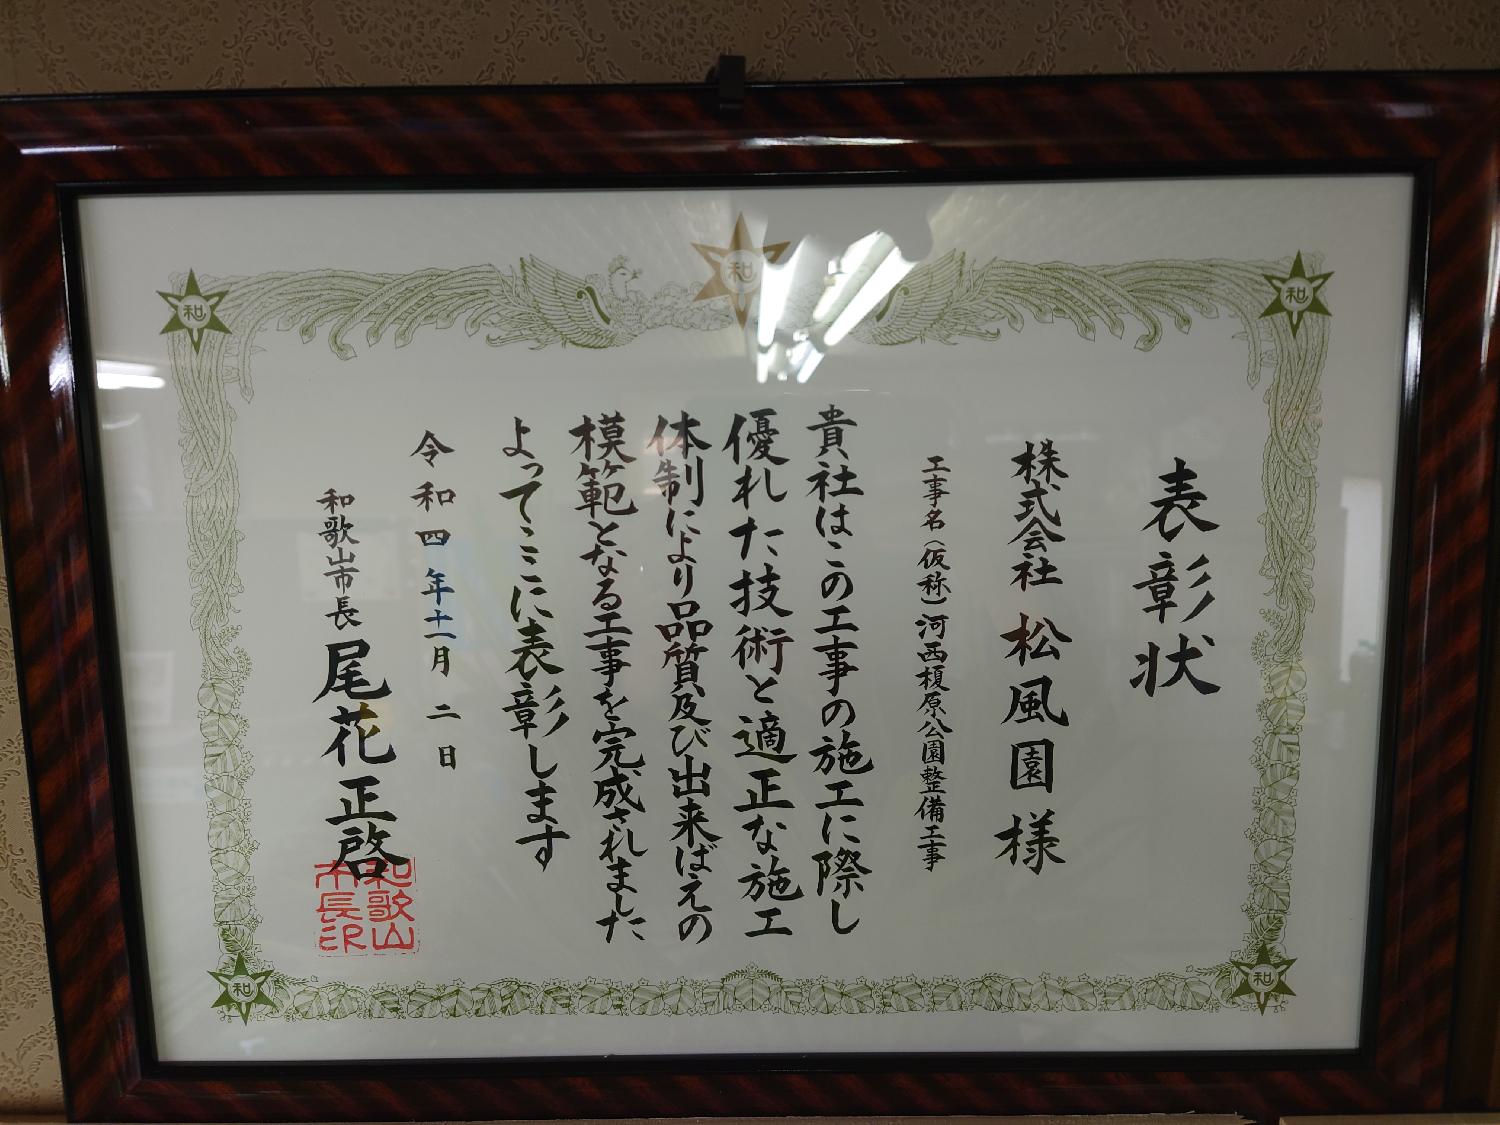 表彰状
株式会社 松風園様
工事名(仮称)河西榎原公園整備工事
貴社はこの工事の施工に際し
優れた技術と適正な施工
体制により品質及び出来ばえの
模範となる工事を完成されました
よってここに表彰します
令和四年十一月二日
和歌山市長 尾花正啓
和歌山
市長印
和
和
和
和
和